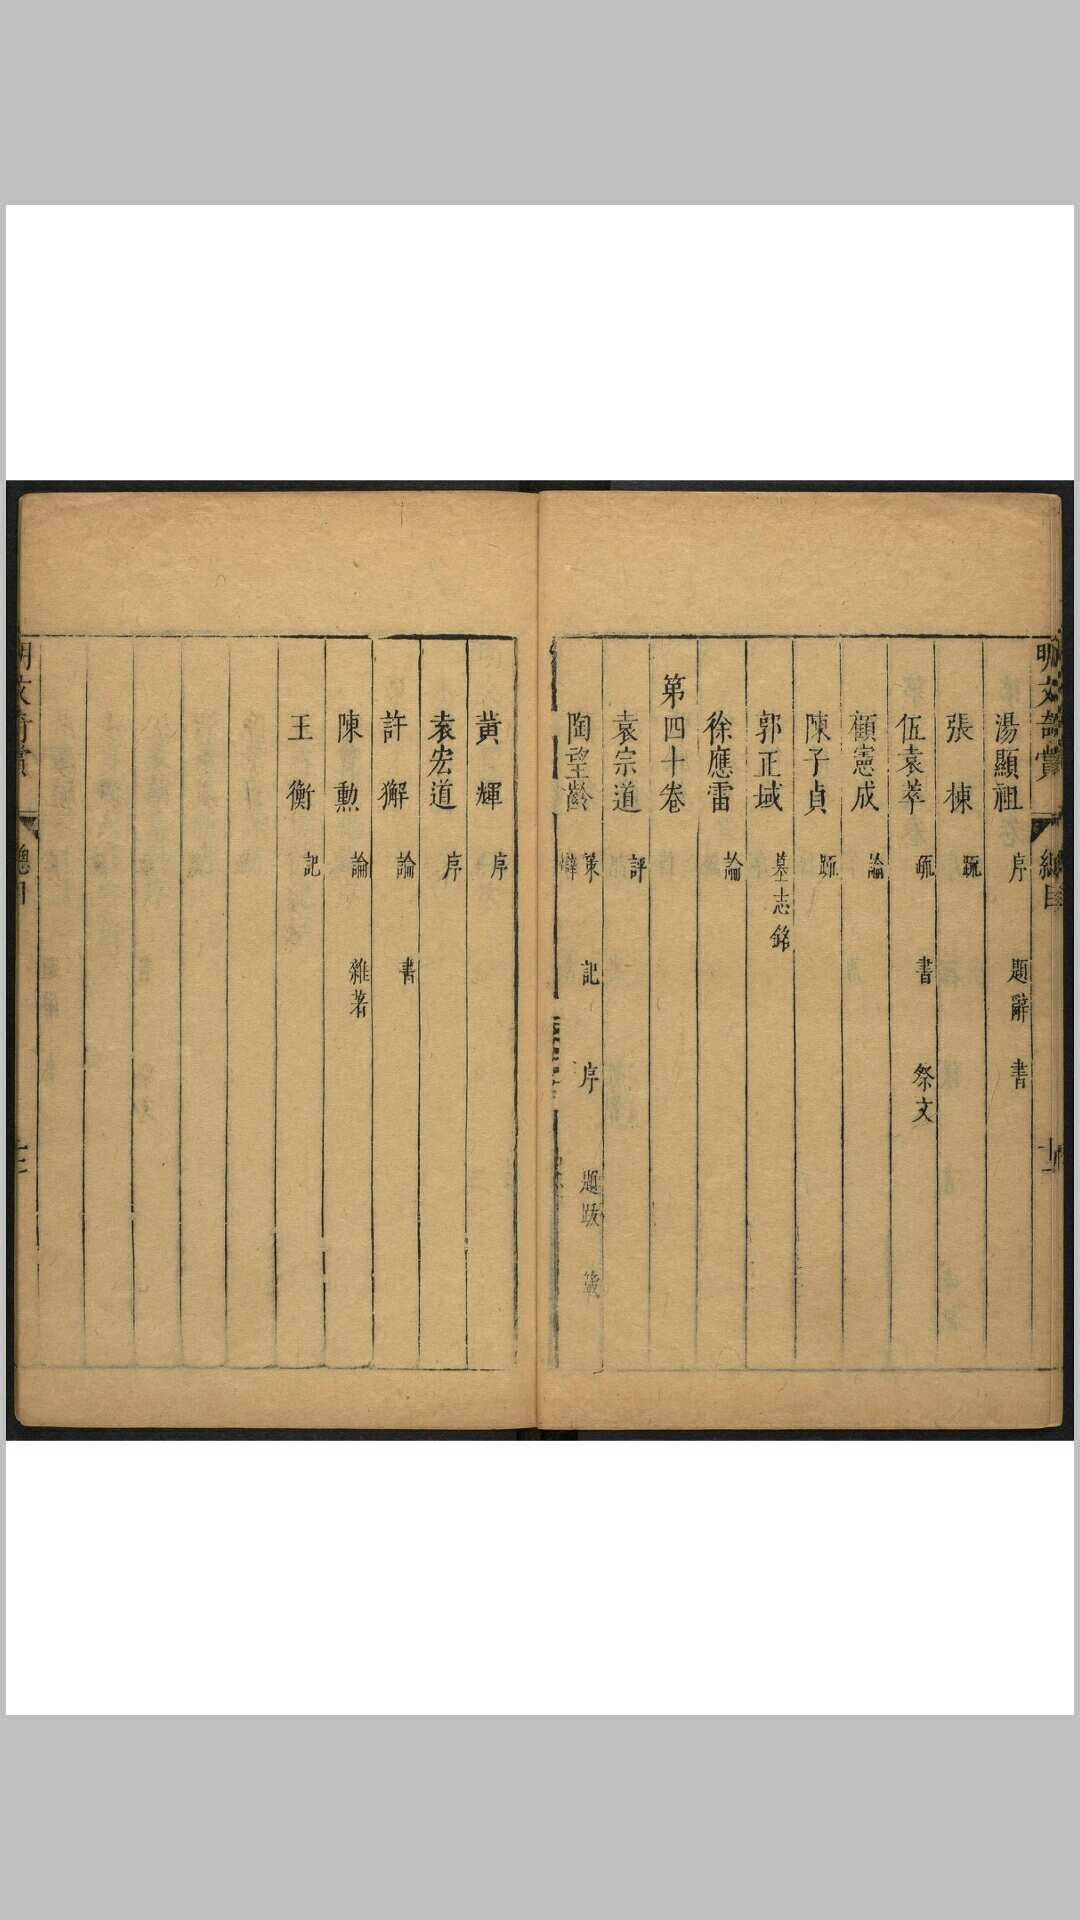 明文奇賞 總目 十二
湯顯祖 序 題辭 書
張棟 疏
伍袁萃 疏 書 祭文
顧憲成 論
陳子貞 疏
郭正域 墓志銘
徐應雷 論
第四十卷
袁宗道 評
陶望齡 策 記 序 題跋 箴
辯
黃輝 序
袁宏道 序
許獬 論 書
陳勳 論 雜著
王衡 記
明文奇賞 總目